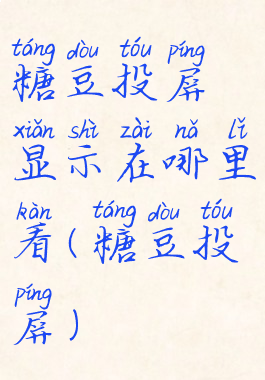 táng dòu tóu píng
糖豆投屏
xiǎn shì zài nǎ lǐ
显示在哪里
kàn táng dòu tóu
看(糖豆投
píng
屏)